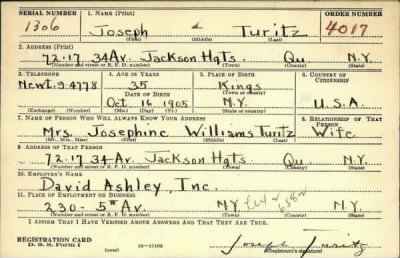 SERIAL NUMBER 1. NAME (Print) ORDER NUMBER
1306 Joseph Turitz 4017
(First) (Middle) (Last)
2. ADDRESS (Print)
72-17 34 Av. Jackson Hgts. Qu. N.Y.
(Number and street or R. F. D. number) (Town) (County) (State)
3. TELEPHONE 4. AGE IN YEARS 5. PLACE OF BIRTH 6. COUNTRY OF CITIZENSHIP
35 Kings
Newt. 9.4778 DATE OF BIRTH (Town or county)
Oct 16 1905 N.Y. U.S.A.
(Exchange) (Number) (Mo.) (Day) (Yr.) (State or country)
7. NAME OF PERSON WHO WILL ALWAYS KNOW YOUR ADDRESS 8. RELATIONSHIP OF THAT PERSON
Mrs. Josephine Williams Turitz Wife
(Mr., Mrs., Miss) (First) (Middle) (Last)
9. ADDRESS OF THAT PERSON
72-17 34 Av. Jackson Hgts Qu N.Y.
(Number and street or R. F. D. number) (Town) (County) (State)
10. EMPLOYER'S NAME
David Ashley, Inc.
11. PLACE OF EMPLOYMENT OR BUSINESS
230 - 5th Av. N.Y. N.Y.
(Number and street or R. F. D. number) (Town) (County) (State)
I AFFIRM THAT I HAVE VERIFIED ABOVE ANSWERS AND THAT THEY ARE TRUE.
REGISTRATION CARD
D. S. S. Form 1 16-17105 Joseph Turitz
(Registrant's signature)